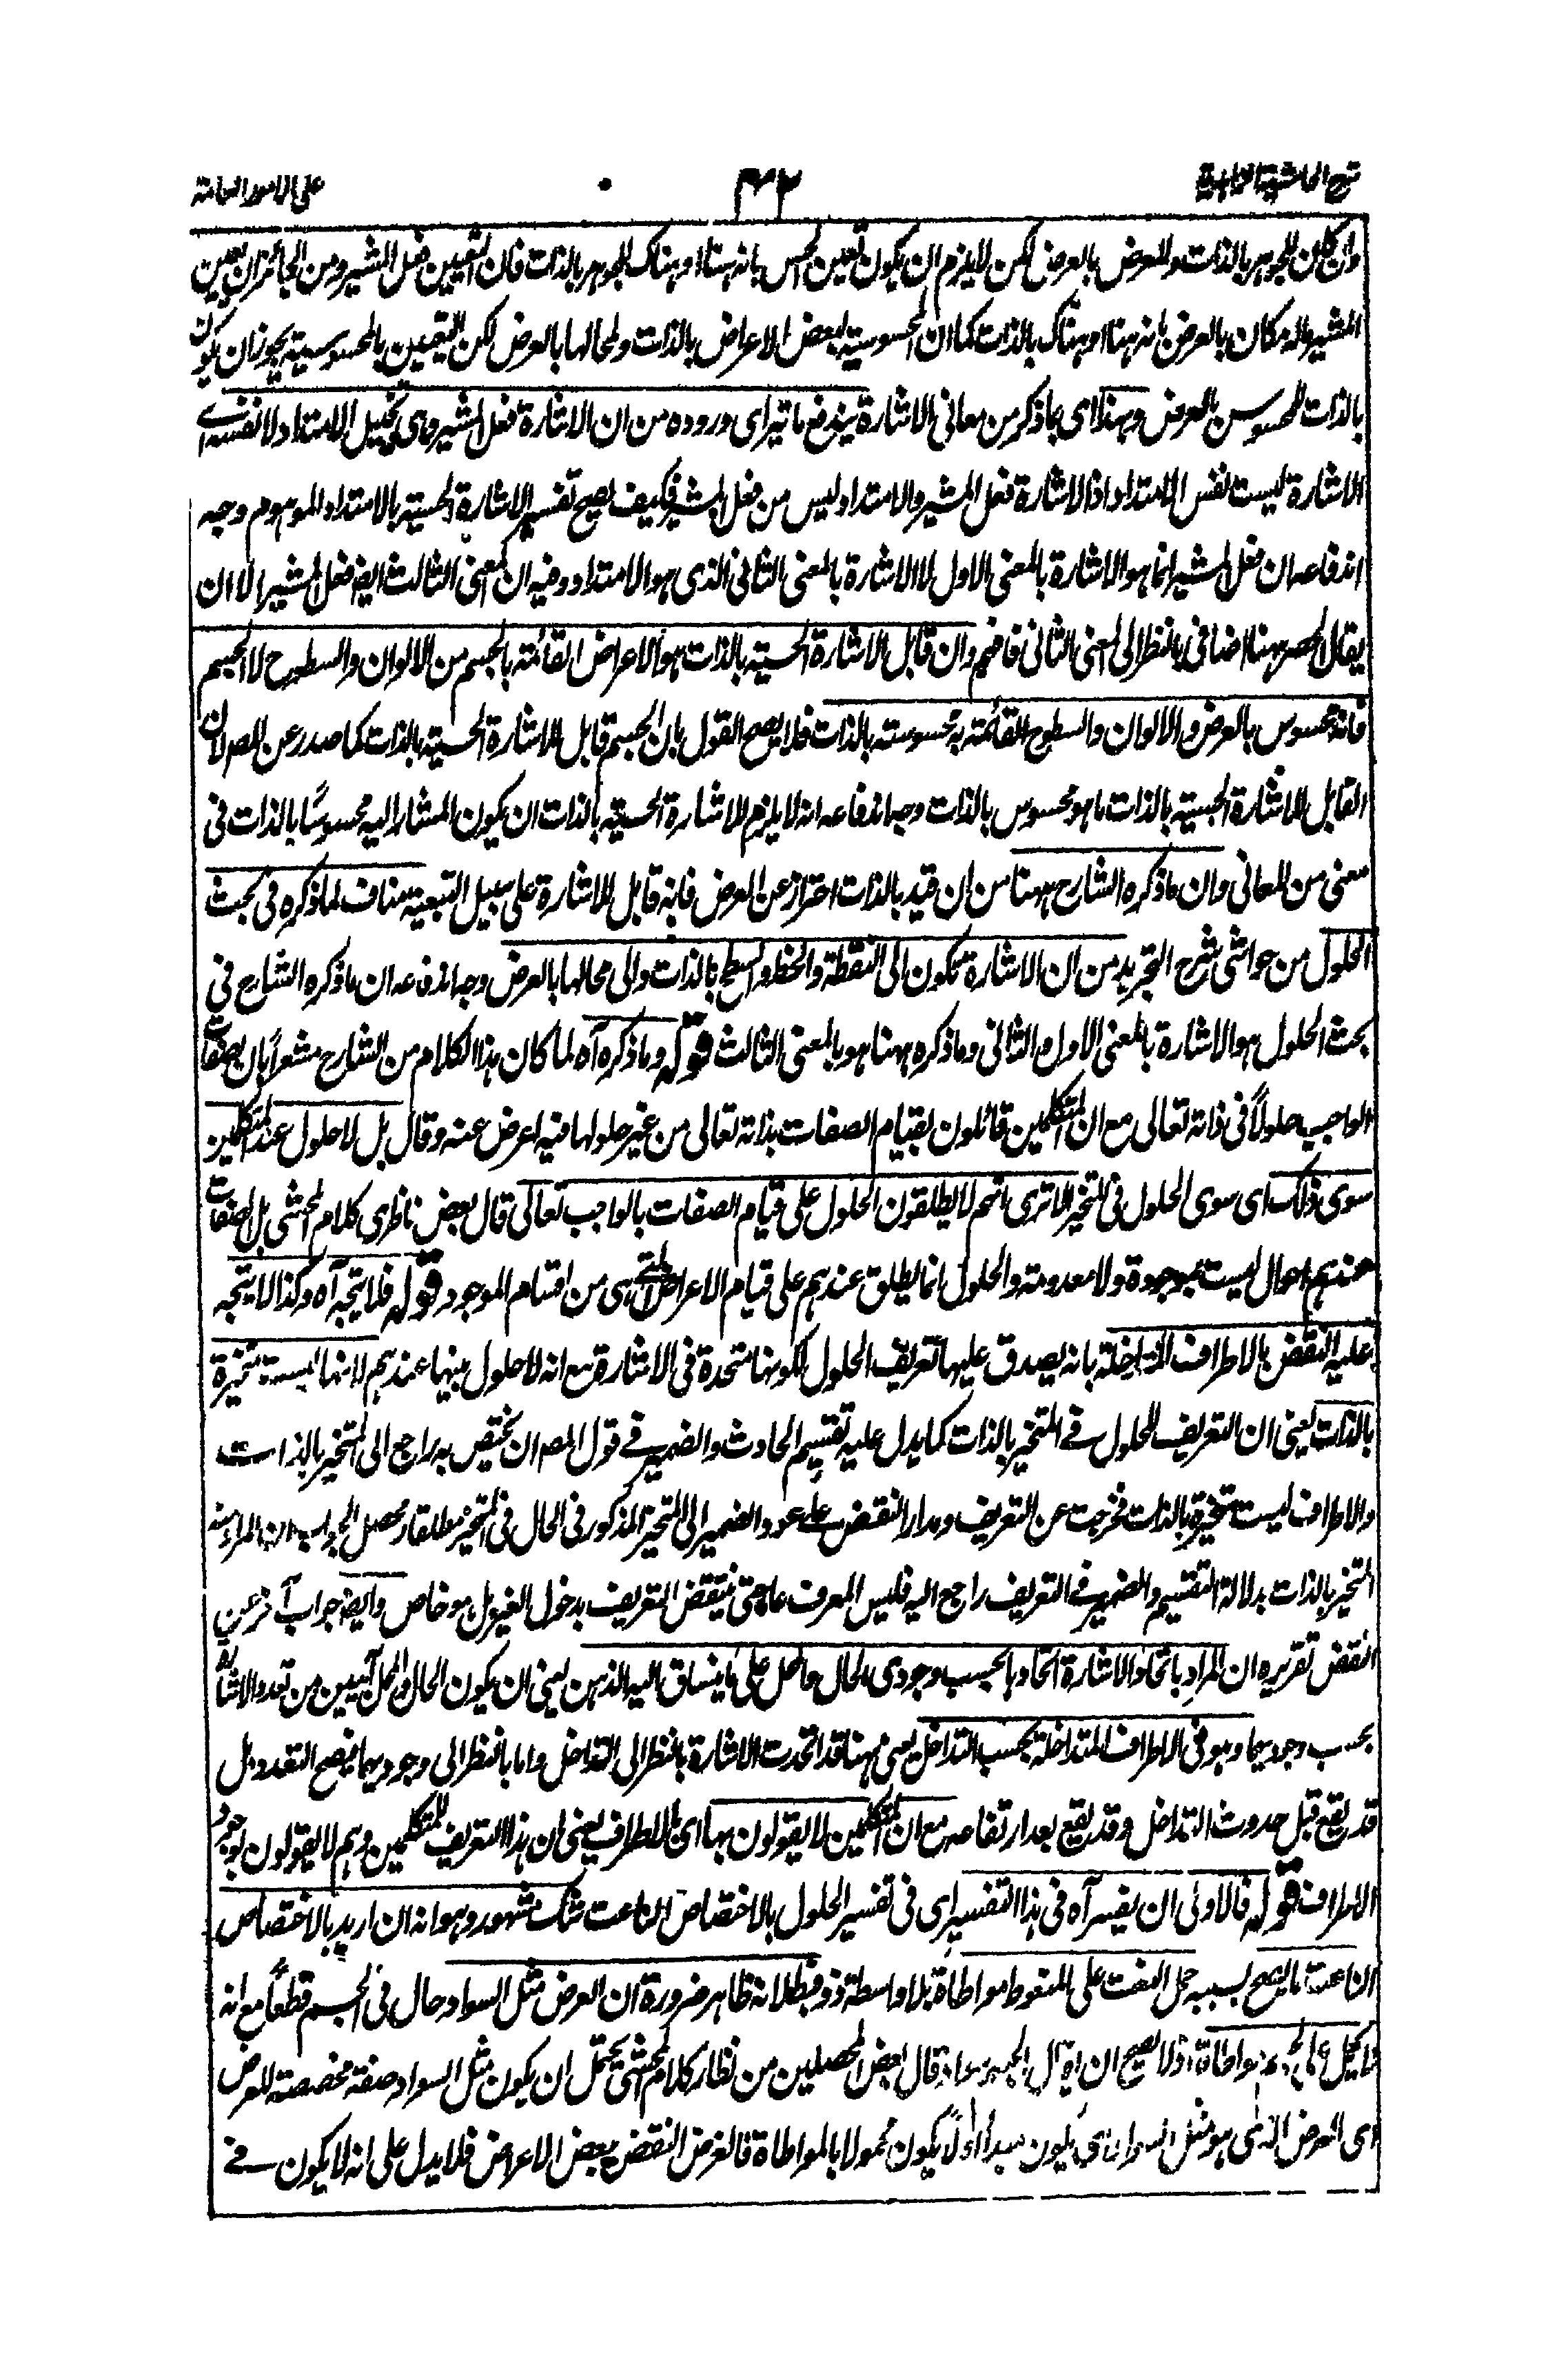 شرح الحاشية الزاهدية
۴۲
على الامور العامة
وان كان للجوهر بالذات وللعرض بالعرض لكن لا يلزم ان يكون تعيين الحس بانه هنا او هناك للجوهر بالذات فان التعيين فعل المشير ومن الجائز ان يعين
المشير والمكان بالعرض بانه هنا او هناك بالذات كما ان المحسوسية لبعض الاعراض بالذات ولمحالها بالعرض لكن التعيين بالمحسوسية يجوز ان يكون
بالذات للمحسوس بالعرض وبهذا اى بما ذكر من معانى الاشارة يندفع ما تيراى وروده من ان الاشارة فعل المشير وهى تخييل الامتداد لا نفسه اى
الاشارة ليست نفس الامتداد اذ الاشارة فعل المشير والامتداد ليس من فعل المشير فكيف يصح تفسير الاشارة الحسية بالامتداد الموهوم وجه
اندفاعه ان فعل المشير انما هو الاشارة بالمعنى الاول لا الاشارة بالمعنى الثانى الذى هو الامتداد وفيه ان المعنى الثالث ايضا فعل المشير الا ان
يقال الحصر ههنا اضافى بالنظر الى المعنى الثانى فافهم وان قابل الاشارة الحسية بالذات هو الاعراض القائمة بالجسم من الالوان والسطوح لا الجسم
فانه محسوس بالعرض والالوان والسطوح القائمة به محسوسة بالذات فلا يصح القول بان الجسم قابل للاشارة الحسية بالذات كما صدر عن المص لان
القابل للاشارة الحسية بالذات ما هو محسوس بالذات وجه اندفاعه انه لا يلزم للاشارة الحسية بالذات ان يكون المشار اليه محسوسًا بالذات فى
معنى من المعانى وان ما ذكره الشارح ههنا من ان قيد بالذات احتراز عن العرض فانه قابل للاشارة على سبيل التبعية مناف لما ذكره فى بحث
الحلول من حواشى شرح التجريد من ان الاشارة تكون الى النقطة والخط والسطح بالذات والى محالها بالعرض وجه اندفاعه ان ما ذكره الشارح فى
بحث الحلول هو الاشارة بالمعنى الاول والثانى وما ذكره ههنا هو بالمعنى الثالث قوله وما ذكره آه لما كان هذا الكلام من الشارح مشعرًا بان لصفات
الواجب حلولاً فى ذاته تعالى مع ان المتكلمين قائلون بقيام الصفات بذاته تعالى من غير حلولها فيه اعرض عنه وقال بل لا حلول عند المتكلمين
سوى ذلك اى سوى الحلول فى المتحيز الا ترى انهم لا يطلقون الحلول على قيام الصفات بالواجب تعالى قال بعض ناظرى كلام المحشى بل الصفات
عندهم احوال ليست بموجودة ولا معدومة والحلول انما يطلق عندهم على قيام الاعراض التى هى من اقسام الموجود قوله فلا يتجه آه وكذا لا يتجه
عليه النقض بالاطراف المتداخلة بانه يصدق عليها تعريف الحلول لكونها متحدة فى الاشارة مع انه لا حلول بينها عندهم لانها ليست متحيزة
بالذات يعنى ان التعريف للحلول فى المتحيز بالذات كما يدل عليه تقسيم الحادث والضمير فى قول المص ان يختص به راجع الى المتحيز بالذات
والاطراف ليست متحيزة بالذات فخرجت عن التعريف ومدار النقض على عود الضمير الى المتحيز المذكور فى الحال فى المتحيز مطلقا ومحصل الجواب ان المراد منه
المتحيز بالذات بدلالة التقسيم والضمير فى التعريف راجع اليه فليس المعرف عاما حتى ينتقض التعريف بدخول الغير بل هو خاص وايضا جواب آخر عن
النقض تقريره ان المراد باتحاد الاشارة اتحادها بحسب وجودى الحال والمحل على ما ينساق اليه الذهن يعنى ان يكون الحال والمحل آبيين من تعدد الاشارة
بحسب وجوديهما وهو فى الاطراف المتداخلة بحسب التداخل يعنى ههنا قد اتحدت الاشارة بالنظر الى التداخل واما بالنظر الى وجوديهما فيصح التعدد بل
قد يقع قبل حدوث التداخل وقد يقع بعد ارتفاعه مع ان المتكلمين لا يقولون بها اى بالاطراف يعنى ان هذا التعريف للمتكلمين وهم لا يقولون بوجود
الاطراف قوله فالاولى ان يفسر آه فى هذا التفسير اى فى تفسير الحلول بالاختصاص الناعت شك مشهور وهو انه ان اريد بالاختصاص
الناعت ما يصح بسببه حمل النعت على المنعوت مواطاة بلا واسطة ذو فبطلانه ظاهر ضرورة ان العرض مثل السواد حال فى الجسم قطعًا مع انه
لا يحمل عليه مواطاة اذ لا يصح ان يقال الجسم سواد قال بعض المحصلين من نظار كلام المحشى يحتمل ان يكون مثل السواد صفة مخصصة للعرض
اى العرض الذى هو مثل السواد فى كون مبدأ اولاً يكون محمولا بالمواطاة فالغرض النقض ببعض الاعراض فلا يدل على انه لا يكون فى